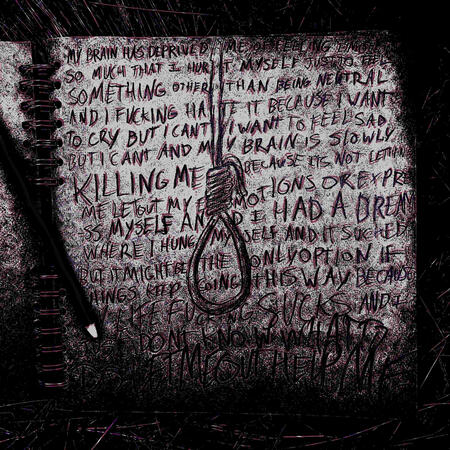 MY BRAIN HAS DEPRIVED ME OF FEELING
SO MUCH THAT I HURT MYSELF JUST TO FEEL
SOMETHING OTHER THAN BEING NEUTRAL
AND I FUCKING HATE IT BECAUSE I WANT
TO CRY BUT I CANT I WANT TO FEEL SAD
BUT I CANT AND MY BRAIN IS SLOWLY
KILLING ME BECAUSE ITS NOT
ME LET OUT MY EMOTIONS OR EXPRE
SS MYSELF AND I HAD A DREAM
WHERE I HUNG MYSELF AND IT SUCKED
BUT IT MIGHT BE THE ONLY OPTION IF
THINGS KEEP GOING THIS WAY BECAUSE
MY LIFE FUCKING SUCKS AND I
DONT KNOW WHAT TO
ME OUT HELP ME